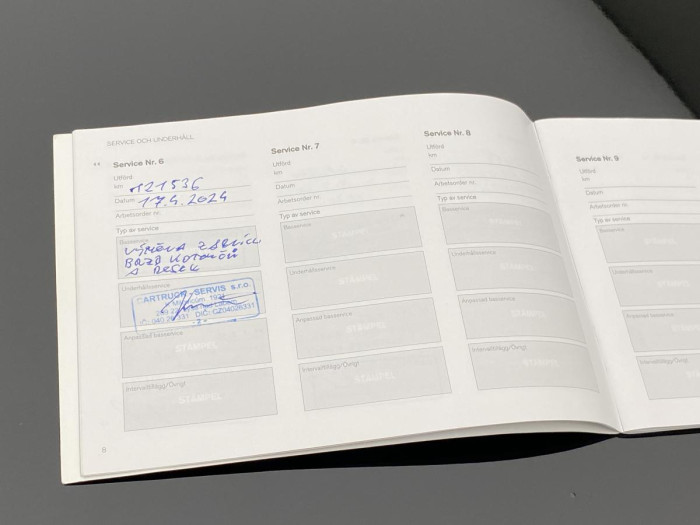 SERVICE OCH UNDERHÅLL
Service Nr. 6
Utförd
km 121536
Datum 17.4.2024
Arbetsorder nr.
Typ av service
Basservice
VÝMĚNA ZADNÍCH
BRZD KOTOUČŮ
A DESEK
Underhållsservice
CARTRUCK-SERVIS s.r.o.
DIČ: CZ04026331
-2-
Anpassad basservice
STÄMPEL
Intervalltillägg/Övrigt
STÄMPEL
8
Service Nr. 7
Utförd
km
Datum
Arbetsorder nr.
Typ av service
Basservice
Underhållsservice
STÄMPEL
Anpassad basservice
STÄMPEL
Intervalltillägg/Övrigt
STÄMPEL
Service Nr. 8
Utförd
km
Datum
Arbetsorder nr.
Typ av service
Basservice
Underhållsservice
Anpassad basservice
STÄMPEL
Intervalltillägg/Övrigt
STÄMPEL
Service Nr. 9
Utförd
km
Datum
Arbetsorder nr.
Typ av service
Basservice
Underhållsservice
Anpassad basservice
Intervalltillägg/Övrigt